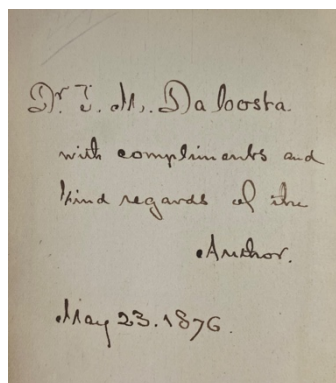 Dr. J. M. DaCosta
with compliments and
kind regards of the
Author.
May 23. 1876.